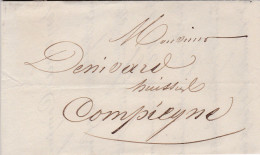 Monsieur
Denivard
huissier
Compiegne